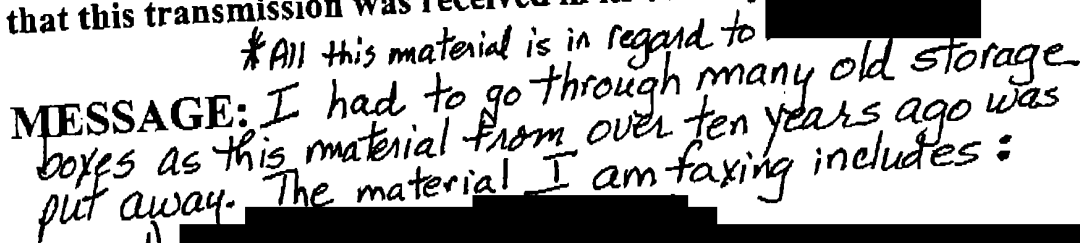 that this transmission was received in
*All this material is in regard to
MESSAGE: I had to go through many old storage
boxes as this material from over ten years ago was
put away. The material I am faxing includes:
1)